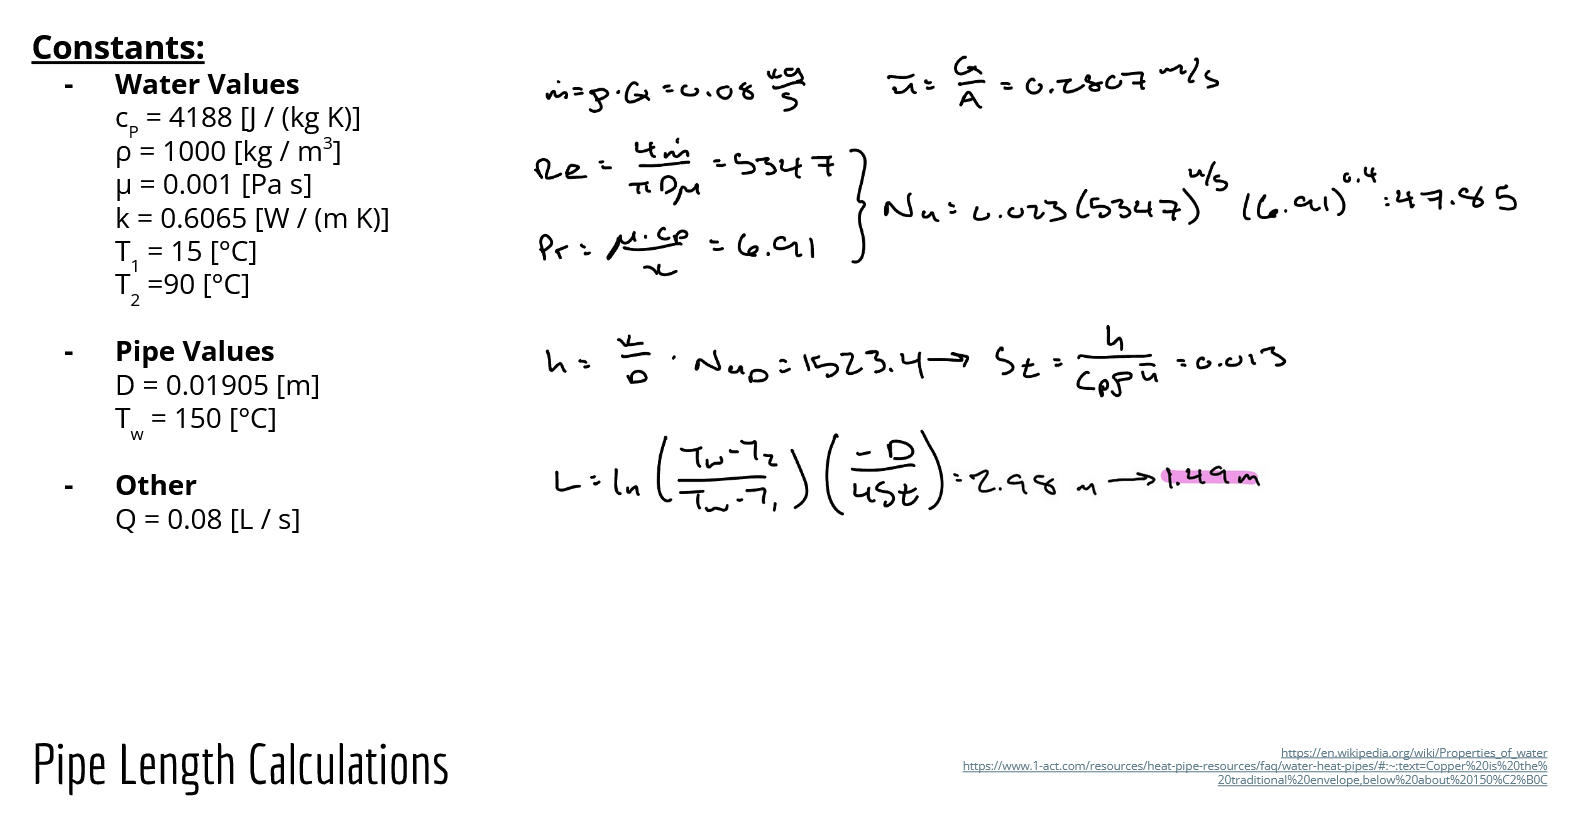 Constants:
- Water Values
cP = 4188 [J / (kg K)]
ρ = 1000 [kg / m³]
μ = 0.001 [Pa s]
k = 0.6065 [W / (m K)]
T1 = 15 [°C]
T2 =90 [°C]
- Pipe Values
D = 0.01905 [m]
Tw = 150 [°C]
- Other
Q = 0.08 [L / s]
ṁ = ρ · Q = 0.08 kg/s
ū = Q/A = 0.2807 m/s
Re = 4ṁ / πDμ = 5347
Pr = μ·cp / k = 6.91
Nu = 0.023 (5347)^4/5 (6.91)^0.4 = 47.85
h = k/D · NuD = 1523.4 → St = h / cpρū = 0.013
L = ln (Tw-T2 / Tw-T1) (-D / 4St) = 2.98 m → 1.49 m
Pipe Length Calculations
https://en.wikipedia.org/wiki/Properties_of_water
https://www.1-act.com/resources/heat-pipe-resources/faq/water-heat-pipes/#:~:text=Copper%20is%20the%
20traditional%20envelope,below%20about%20150%C2%B0C